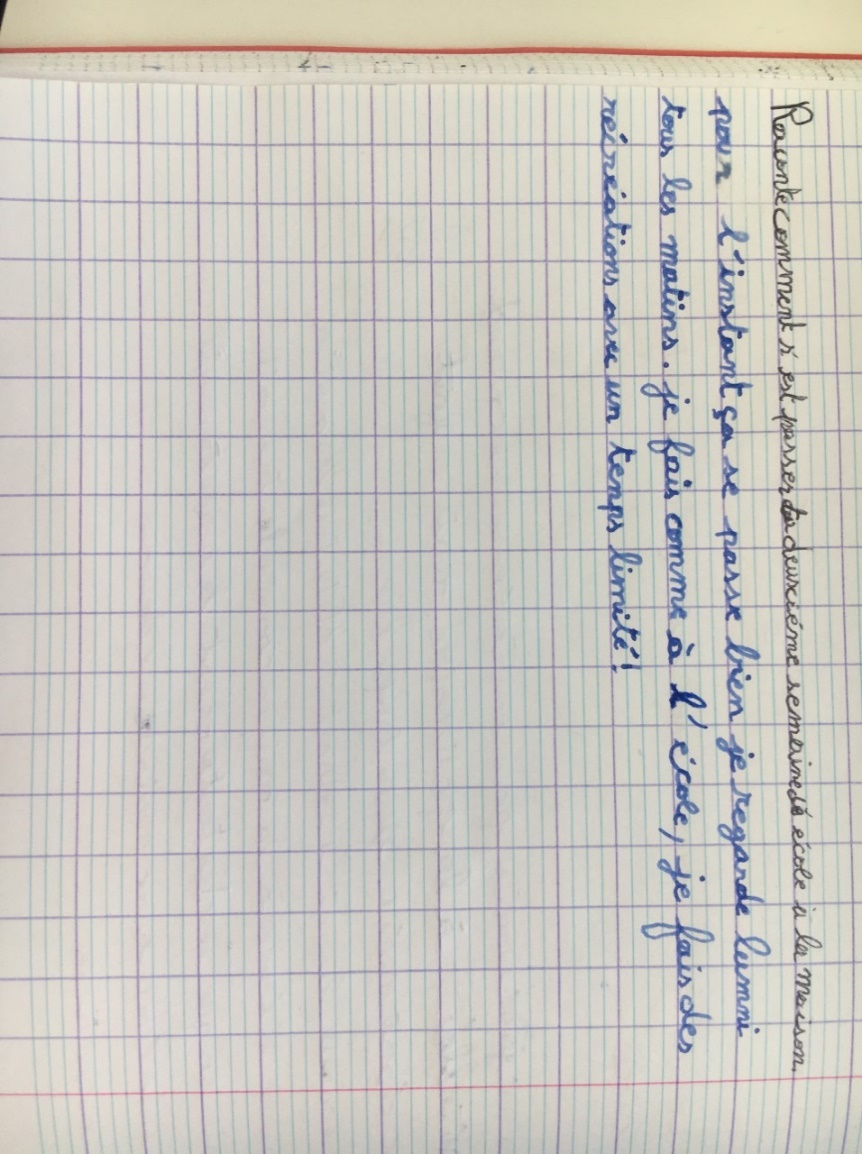 Raconte comment s'est passer ta deuxiéme semaine de école à la maison.
pour l'instant ça se passe bien je regarde lumni
tous les matins. je fais comme à l'école, je fais des
récréations avec un temps limité!